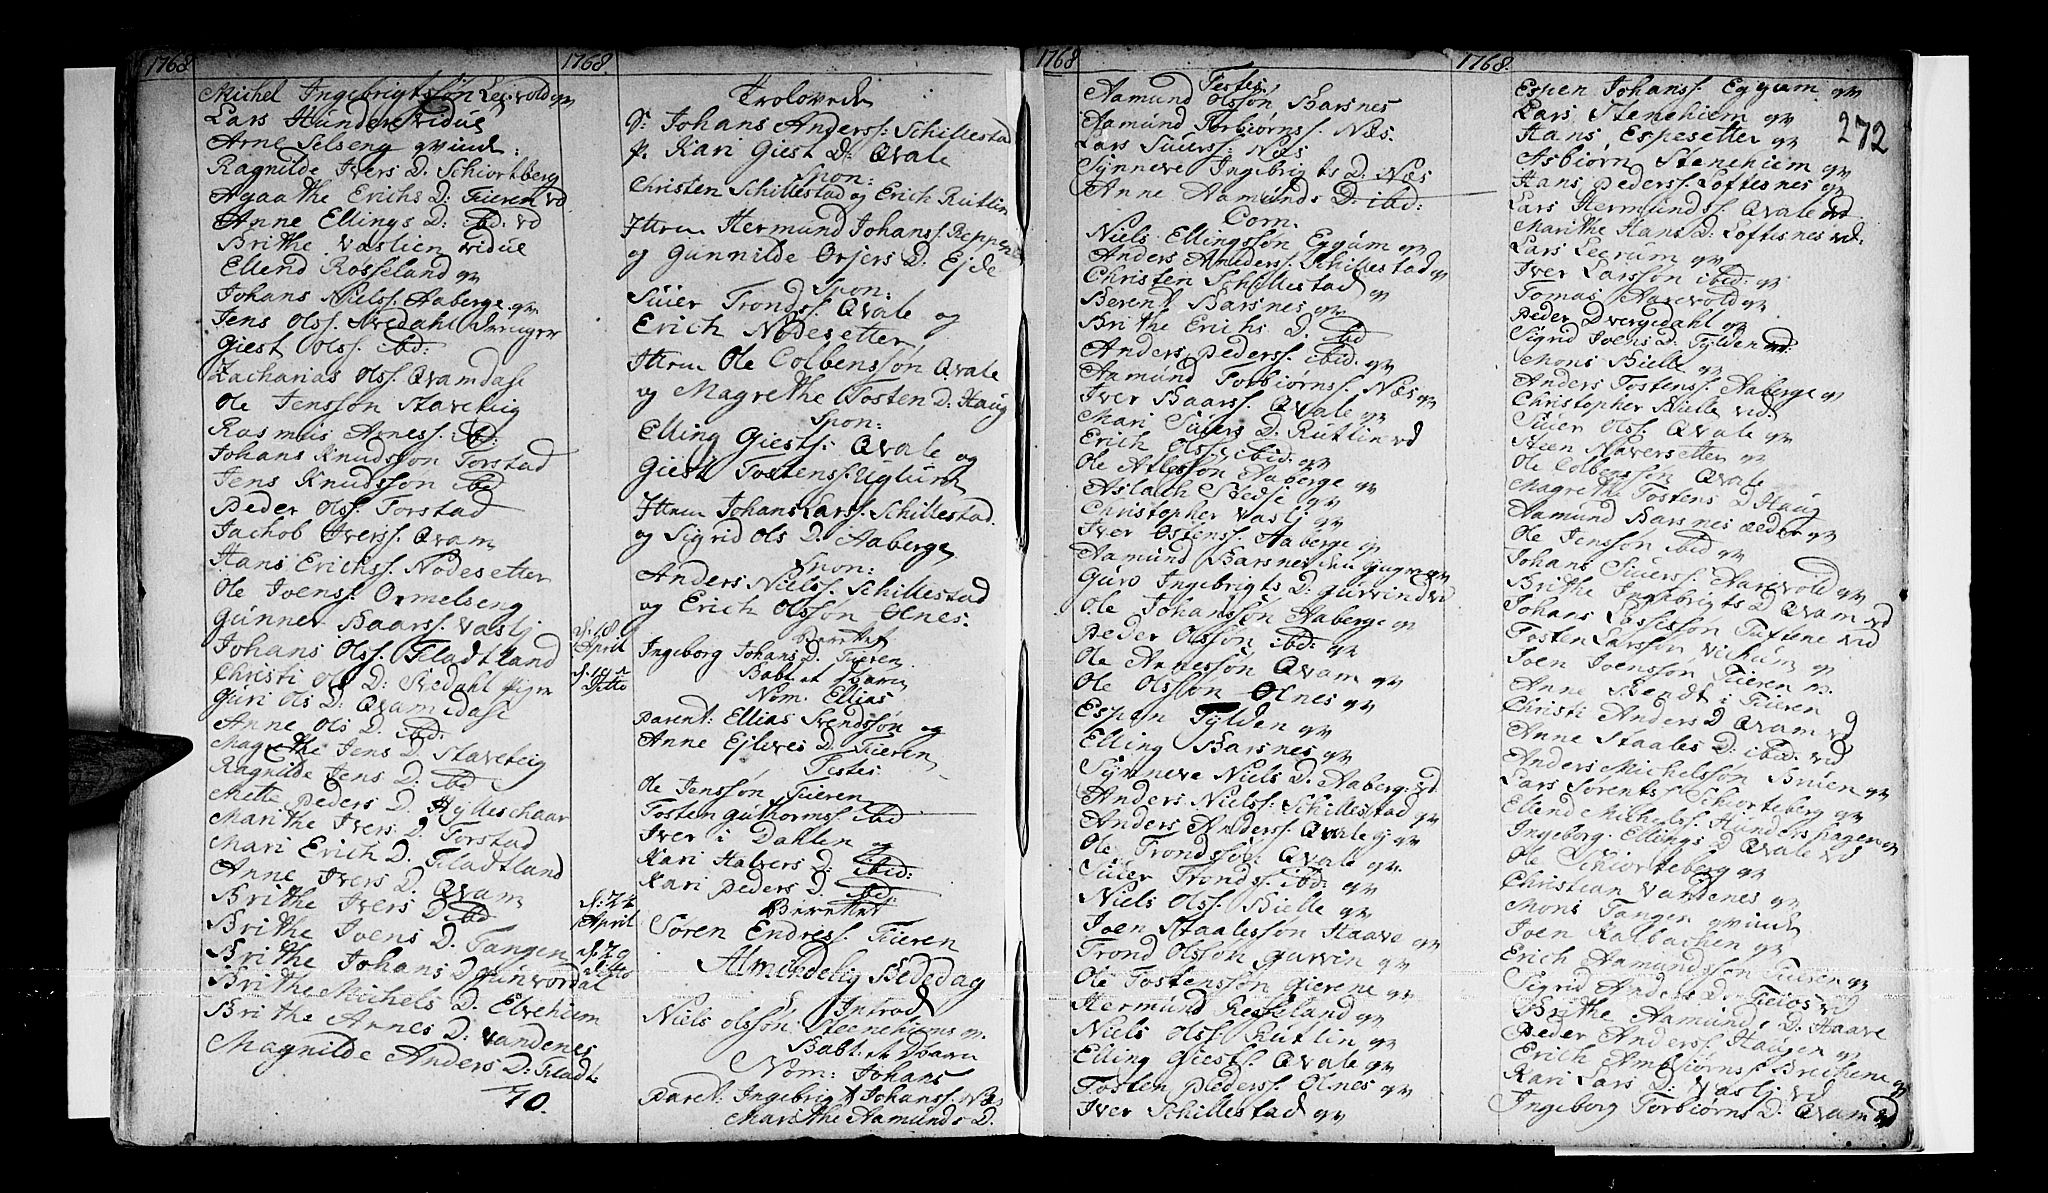 1768
Michel Ingebrigtssøn Leivold qv
Lars Hunderi vidue
Arne Selseng qvinde:
Ragnilde Ivers D. Schiortberg
Agaathe Erichs D: Fieren vd
Anne Ellings D: ibd. vd
Brithe Vastien vidue
Ellend Rosseland qv
Johans Niels: Aaberge qv
Jens Olss. Nredahl
Giest Olss. ibd:
Zacharias Olss. Qvamdase
Ole Jenssøn Staveteig
Rasmus Arness. ibd:
Johans Knudssøn Torstad
Jens Knudssøn ibd
Peder Olss. Torstad
Jachob Iverss. Qvam
Hans Erichss. Nødesetter
Ole Joens: Ormelseng
Gunner Baarss. Vaslj
Johans Olss. Fladtland
Christi Ols D: Nedahl
Guri Ols D: Qvamedase
Anne Ols D. ibd:
Magrethe Jens D. Staveteig
Ragnilde Jens D. ibd
Mette Peders D. Hylleschaar
Marithe Ivers D Torstad
Mari Erich D. Fladtland
Anne Ivers D. Qvam
Brithe Ivers D. ibd
Brithe Joens D. Tangen
Brithe Johans D Gunvordal
Brithe Michels D. Elvehium
Brithe Arnes D. Vandenes
Magnilde Anders D: Fladt
70.
1768.
Trolovede
S: Johans Anderss: Schillestad
p. Kari Giest D: Qvale
Spon:
Christen Schillestad og Erich Rutlin
Ittem Hermund Johanss. Reppen
og Gunnilde Orjers D. Ejde
Spon:
Siuer Tronds. Qvale og
Erich Nødesetter
Ittem Ole Colbenssøn Qvale
og Magrethe Tosten D. Haug
Spon:
Elling Giests: Qvale og
Giest Tostens: Uglum
Ittem Johans Larss. Schillestad.
og Sigrid Ols D. Aaberge
Spon:
Anders Nielss. Schillestad
og Erich Olssøn Olnes:
d. 18
April
Berettet
Ingeborg Johans D. Fieren
d. 19
Ditto
Babt. et Barn
Nom. Ellias
Parent: Ellias Svendssøn og
Anne Ejleves D. Fieren
Testes:
Ole Jenssøn Fieren
Tosten Guthormss. ibd
Iver i Dahlen og
Kari Halvers D: ibid:
Kari Peders D. ibd.
d. 24
April
Berettet
Søren Endress. Fieren
d. 29
Ditto
Almindelig Bededag
Introd
Niels Olssøn Steenehiems m.
Babt. et Barn
Nom: Johans
Parent: Ingebrigt Johanss. Næs
Marithe Aamunds D.
1768
Testes:
Aamund Olssøn Barsnes
Aamund Torbiørnss. Næs.
Lars Siuers: Næs
Synneve Ingebrigts D. Næs
Anne Aamunds D: ibd:
Com.
Niels Ellingssøn Eggum qv
Anders Anderss. Schillestad qv
Christen Schillestad qv
Berent Barsnes qv
Brithe Erichs D. ibd
Anders Pederss. ibid. qv
Aamund Torbiørns. Næs qv
Iver Baarss. Qvale qv
Mari Siuers D. Rutlin vd
Erich Olss. ibid. qv
Ole Atlessøn Aaberge qv
Aslach Stedse qv
Christopher Vaslj qv
Iver Ostenss. Aaberge qv
Aamund Barsnes den yngre qv
Guro Ingebrigts D. Gurvin vd
Ole Johanssøn Aaberge qv
Peder Olssøn ibd: qv
Ole Arnessøn Qvam qv
Ole Olssøn Olnes qv
Espen Tylden qv
Elling Barsnes qv
Synneve Niels D. Aaberg: vd
Anders Nielss: Schillestad qv
Anders Anderss. Qvale qv
Ole Trondssøn Qvale qv.
Siuer Tronds. ibd: qv
Niels Olss. Bielle qv
Joen Staalessøn Haave qv
Trond Olssøn Gurvin qv
Ole Tostenssøn Gierene qv
Hermund Rosseland qv
Niels Olss. Rutlin qv
Elling Giests. Qvale qv
Tosten Pederss. Olnes qv
Iver Schillestad qv
1768.
272
Espen Johanss. Eggum qv
Lars Stenehiem qv
Hans Espesetter qv
Asbiørn Stenehiem qv
Hans Pederss. Loftesnes qv
Lars Hermunds. Qvale vd
Marithe Hans D. Loftesnes vd:
Lars Leerum qv
Iver Larssøn ibid: qv
Tomas Aarevold qv
Peder Dvergedahl qv
Sigrid Joens D: Tylden vd:
Mons Bielle qv
Anders Tostens. Aaberge qv
Christopher Bielle vid
Siuer Olss. Qvale qv
Steen Naversetter qv
Ole Colbenssøn Qvale
Magrethe Tostens D Haug
Aamund Barsnes ælder qv
Ole Jenssøn ibid qv
Johans Siuerss. Aarevold qv
Brithe Ingebrigts D Qvam vd
Johans Lassessøn Tuftene vid
Tosten Larssøn Vichum qv
Joen Joenssøn Fieren m.
Anne Bendt i Fieren
Christi Anders D. Qvam vd
Anne Staales D: ibid. vd
Anders Michelssøn Bruen qv
Lars Sørents. Schiorteberg qv
Ellend Michelss. Hunderhagen qv
Ingeborg Ellings D Qvale vd
Ole Schiorteberg qv
Christian Vandenes qv
Mons Tangen qvinde
Joen Kalbachen qv
Erich Aamundssøn Fieren qv
Sigrid Anders D: Feios vd
Brithe Aamunds D. Haave
Peder Anderss. Haugen qv
Erich Arnbiørns. Brechene qv
Kari Lars D: Vaslj vd
Ingeborg Torbiørns D. Qvam vd